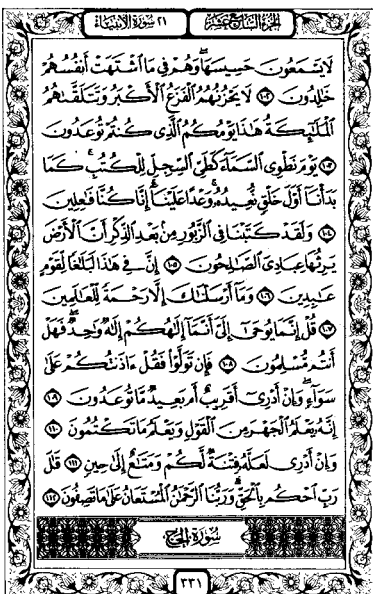 الجزء السابع عشر ٢١ سورة الأنبياء
لَا يَسْمَعُونَ حَسِيسَهَا ۖ وَهُمْ فِي مَا اشْتَهَتْ أَنْفُسُهُمْ
خَالِدُونَ ١٠٢ لَا يَحْزُنُهُمُ الْفَزَعُ الْأَكْبَرُ وَتَتَلَقَّاهُمُ
الْمَلَائِكَةُ هَٰذَا يَوْمُكُمُ الَّذِي كُنْتُمْ تُوعَدُونَ
١٠٣ يَوْمَ نَطْوِي السَّمَاءَ كَطَيِّ السِّجِلِّ لِلْكُتُبِ ۚ كَمَا
بَدَأْنَا أَوَّلَ خَلْقٍ نُعِيدُهُ ۚ وَعْدًا عَلَيْنَا ۚ إِنَّا كُنَّا فَاعِلِينَ
١٠٤ وَلَقَدْ كَتَبْنَا فِي الزَّبُورِ مِنْ بَعْدِ الذِّكْرِ أَنَّ الْأَرْضَ
يَرِثُهَا عِبَادِيَ الصَّالِحُونَ ١٠٥ إِنَّ فِي هَٰذَا لَبَلَاغًا لِقَوْمٍ
عَابِدِينَ ١٠٦ وَمَا أَرْسَلْنَاكَ إِلَّا رَحْمَةً لِلْعَالَمِينَ
١٠٧ قُلْ إِنَّمَا يُوحَىٰ إِلَيَّ أَنَّمَا إِلَٰهُكُمْ إِلَٰهٌ وَاحِدٌ ۖ فَهَلْ
أَنْتُمْ مُسْلِمُونَ ١٠٨ فَإِنْ تَوَلَّوْا فَقُلْ آذَنْتُكُمْ عَلَىٰ
سَوَاءٍ ۖ وَإِنْ أَدْرِي أَقَرِيبٌ أَمْ بَعِيدٌ مَا تُوعَدُونَ ١٠٩
إِنَّهُ يَعْلَمُ الْجَهْرَ مِنَ الْقَوْلِ وَيَعْلَمُ مَا تَكْتُمُونَ ١١٠
وَإِنْ أَدْرِي لَعَلَّهُ فِتْنَةٌ لَكُمْ وَمَتَاعٌ إِلَىٰ حِينٍ ١١١ قَالَ
رَبِّ احْكُمْ بِالْحَقِّ ۗ وَرَبُّنَا الرَّحْمَٰنُ الْمُسْتَعَانُ عَلَىٰ مَا تَصِفُونَ ١١٢
سُورَةُ الحَجِّ
٣٣١